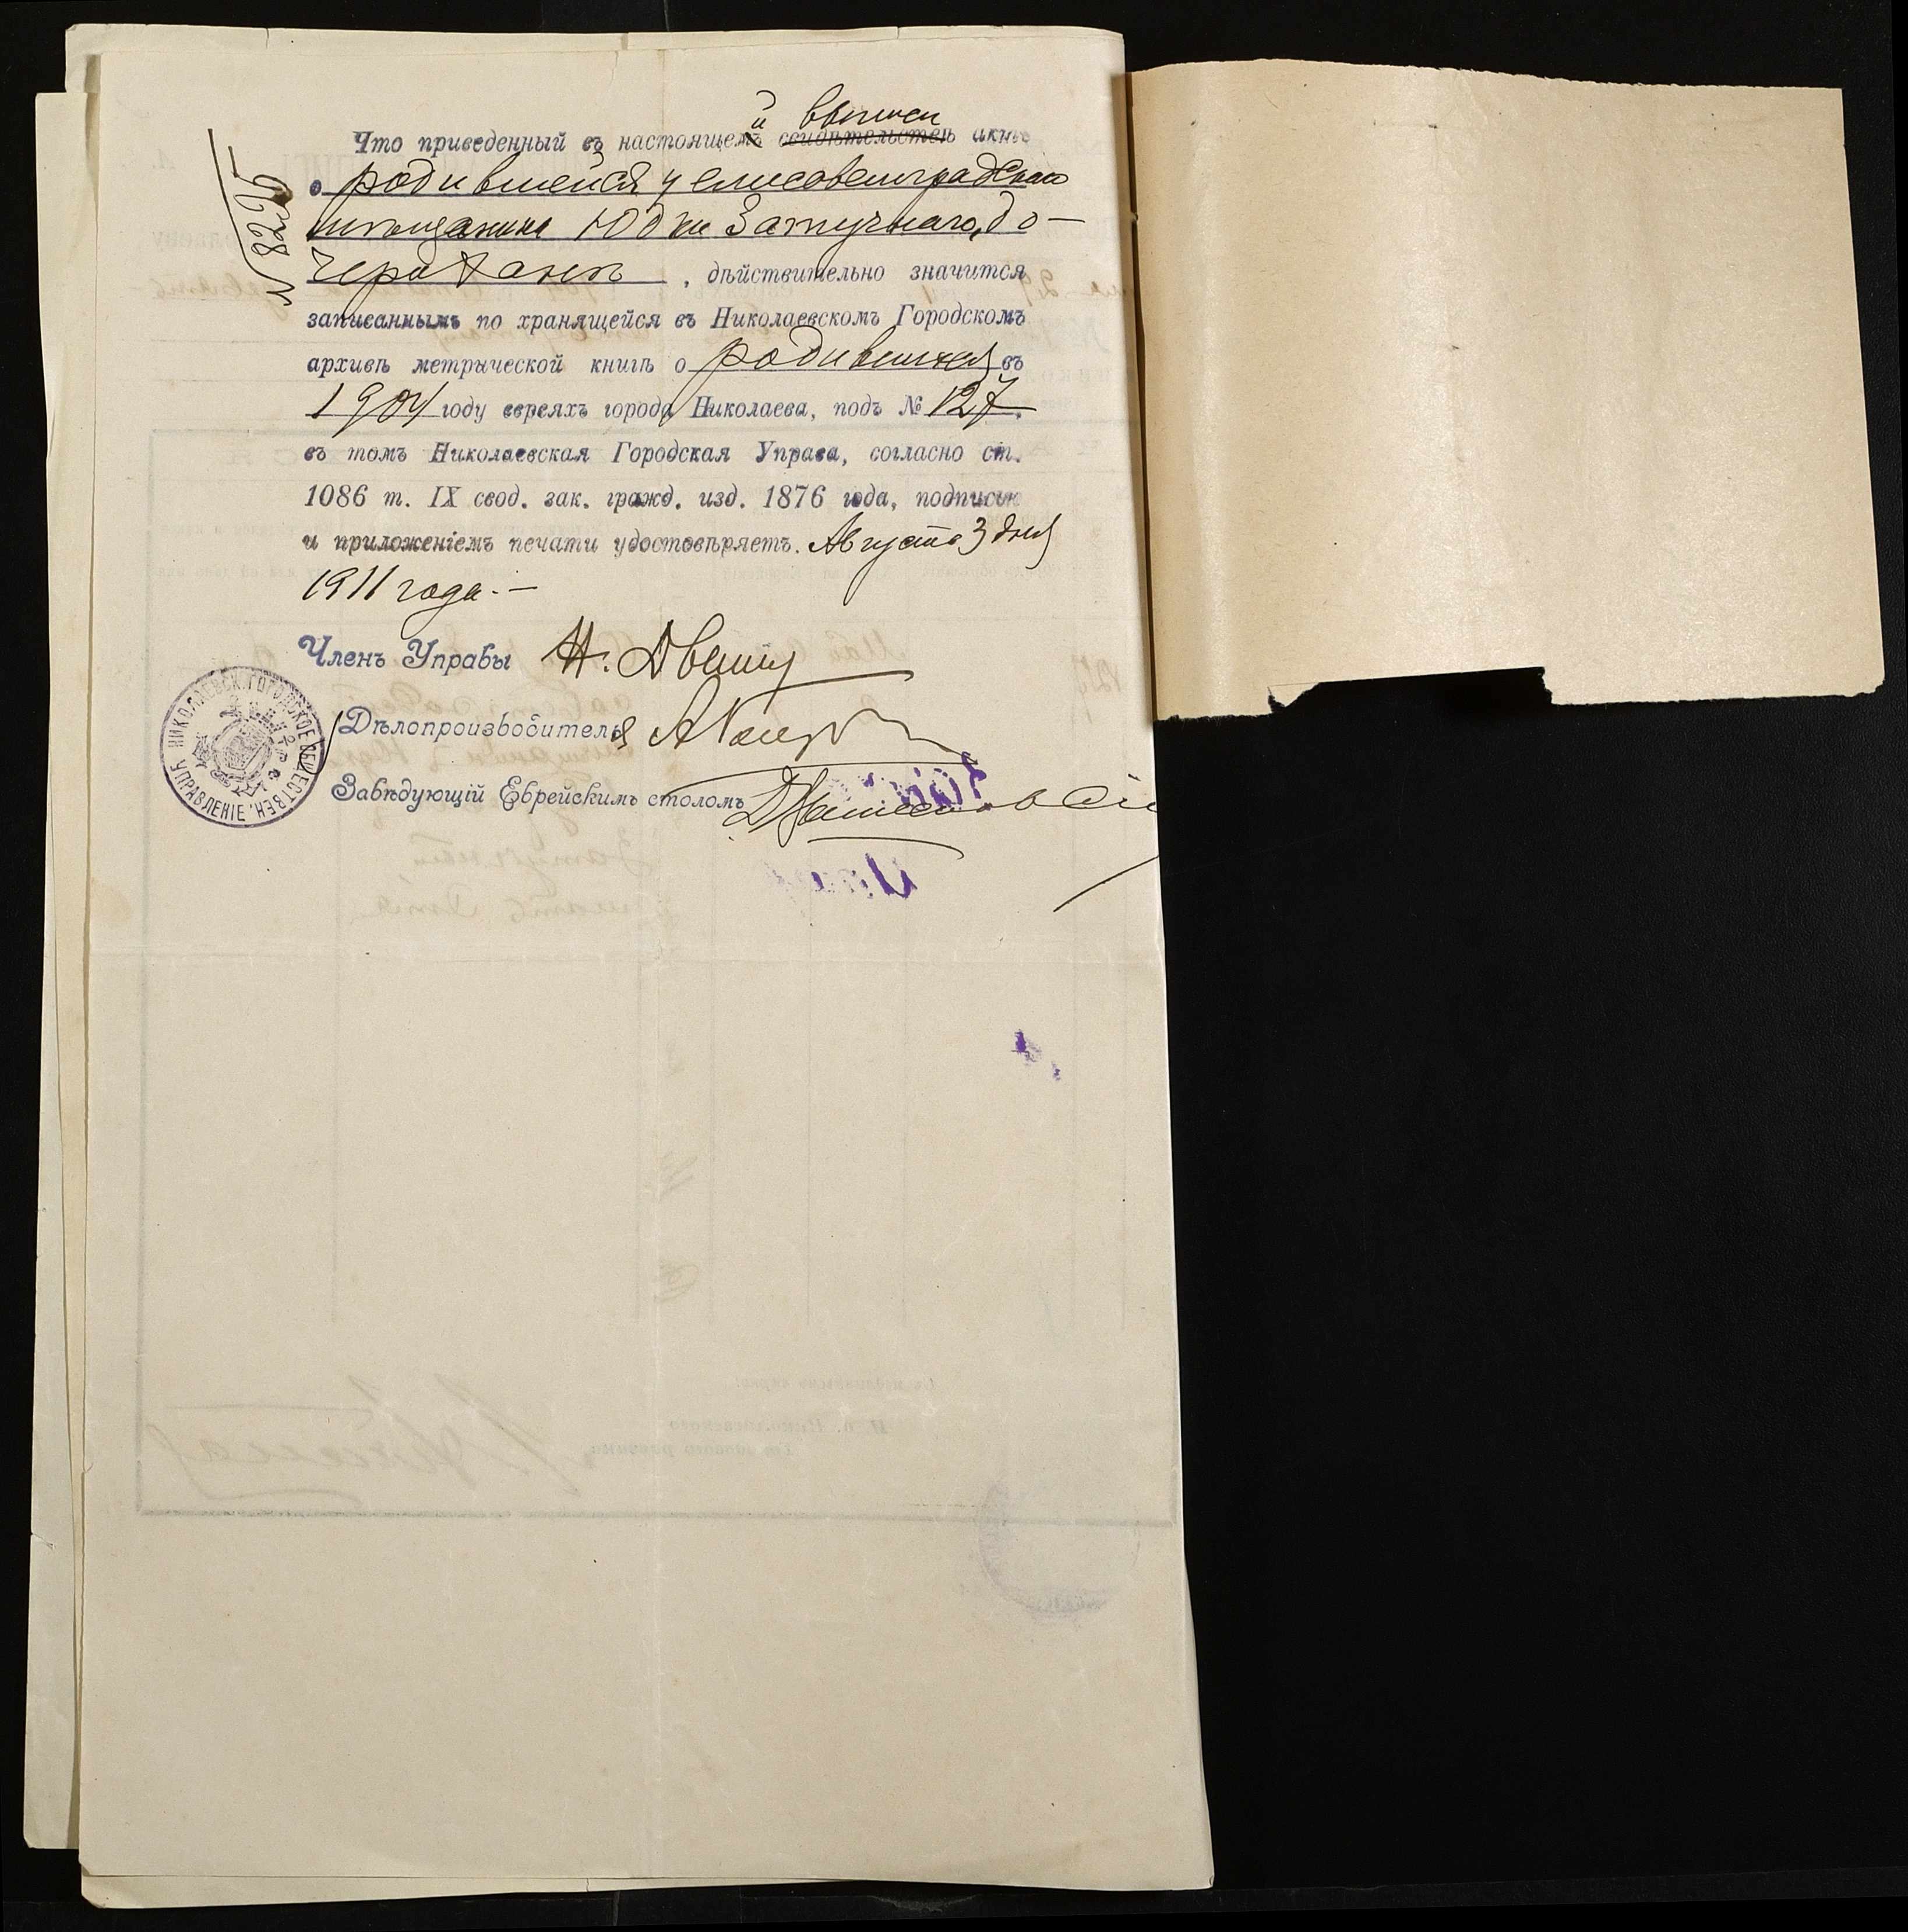 й выписи
Что приведенный въ настоящемъ свидѣтельствѣ актъ
о родившейся у елисаветградскаго
мѣщанина Юдки Затучнаго, до-
чери Ханѣ, дѣйствительно значится
записаннымъ по хранящейся въ Николаевскомъ Городскомъ
архивѣ метрической книгѣ о родившихся въ
1904 году евреяхъ города Николаева, подъ № 127,
въ томъ Николаевская Городская Управа, согласно ст.
1086 т. IX свод. зак. гражд. изд. 1876 года, подписью
и приложеніемъ печати удостовѣряетъ. Августа 3 дня
1911 года.—
№ 8225
Членъ Управы Н.
Дѣлопроизводитель
Завѣдующій Еврейскимъ столомъ
НИКОЛАЕВСК. ГОРОДСКОЕ ОБЩЕСТВЕН. УПРАВЛЕНІЕ